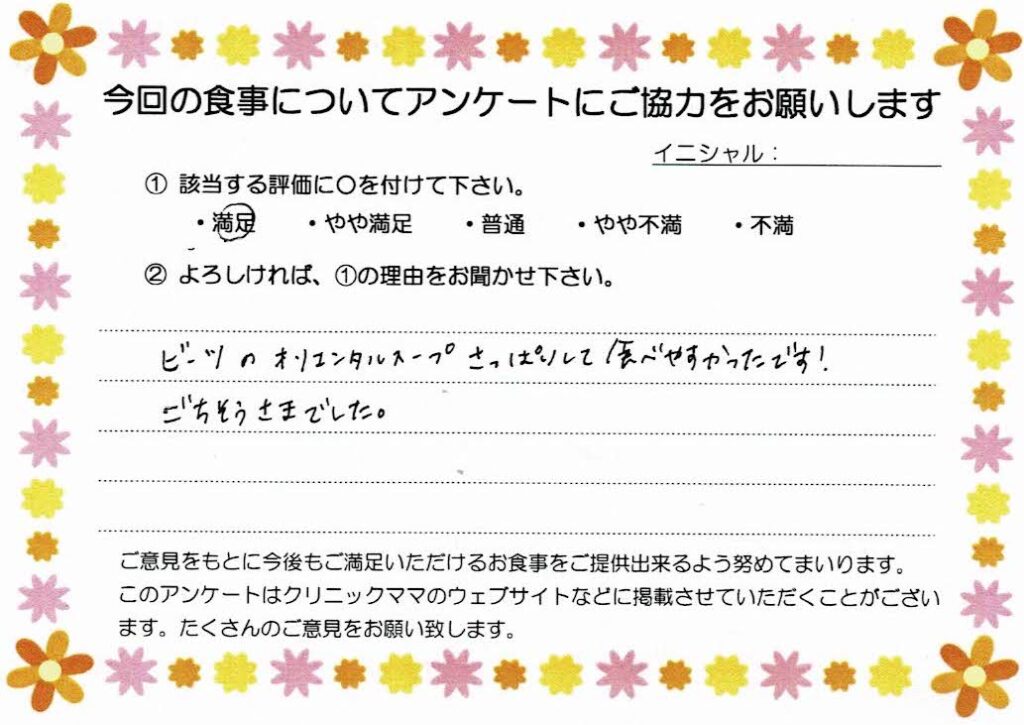 今回の食事についてアンケートにご協力をお願いします
イニシャル：
① 該当する評価に〇を付けて下さい。
・満足 ・やや満足 ・普通 ・やや不満 ・不満
② よろしければ、①の理由をお聞かせ下さい。
ビーツの オリエンタルスープ さっぱりして 食べやすかったです！
ごちそうさまでした。
ご意見をもとに今後もご満足いただけるお食事をご提供出来るよう努めてまいります。
このアンケートはクリニックママのウェブサイトなどに掲載させていただくことがござい
ます。たくさんのご意見をお願い致します。